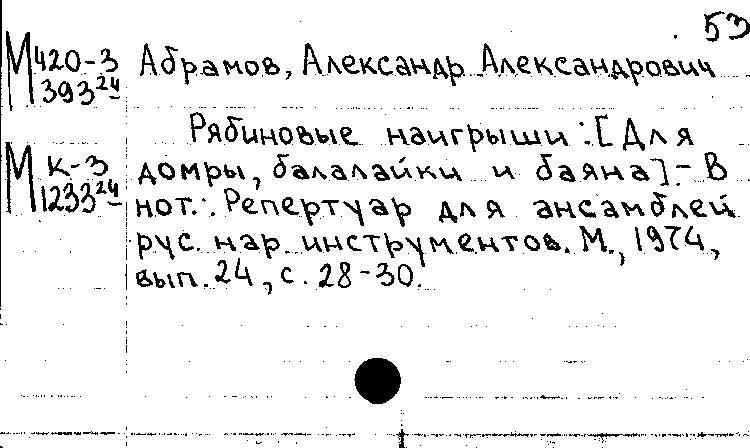 53
М 420-3 Абрамов, Александр Александрович
393 24
Рябиновые наигрыши: [Для
М К-3 домры, балалайки и баяна]. - В
1233 24 нот.: Репертуар для ансамблей
рус. нар. инструментов. М., 1974,
вып. 24, с. 28-30.